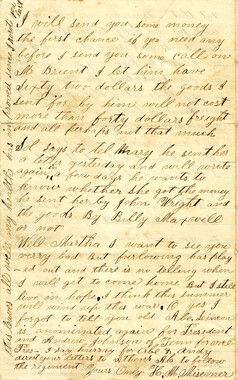 I will send you some money
the first chance if you need any
before I send you some call on
Mr Brient I let him have
Sixty two dollars the goods I
sent for by him will not cost
more than forty dollars freight
and all perhaps not that much
Sol Says to tell Mary he sent her
a letter yesterday and will write
again in a few days he wants to
know whether She got the money
he sent her by John Wright and
the goods By Billy Maxwell
or not
Well Martha I want to see you
verry bad But furlowing has play
ed out and there is no telling when
I will get to come home But I still
live in hope I think this summer
will wind up this war O yes I
forgot to tell you old Abe Lincon
is anominated again for President
and Andrew Johnson of Tenn for vice
Pres I Say hurray for Abe & Andy
direct your letters to Athens Ala to follow
the regiment Yours Only H. M. Misemer
my health has improved since I wrote the